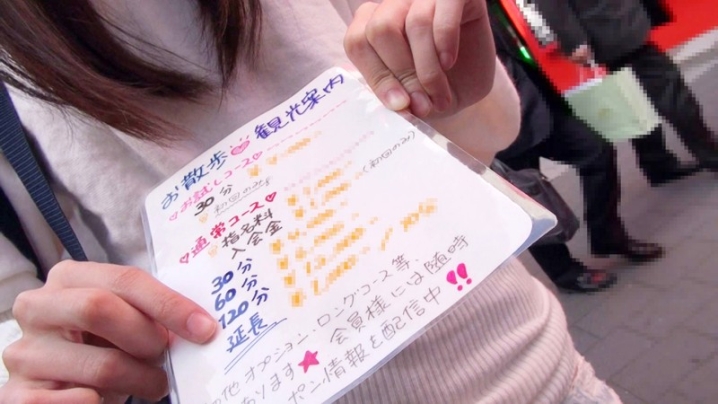 お散歩♡観光案内
♡お試しコース♡
30分
(初回のみ)
♡通常コース♡
指名料
入会金 (初回のみ)
30分
60分
120分
延長
他オプション、ロングコース等、
あります★ 会員様には随時
ポン情報を配信中!!